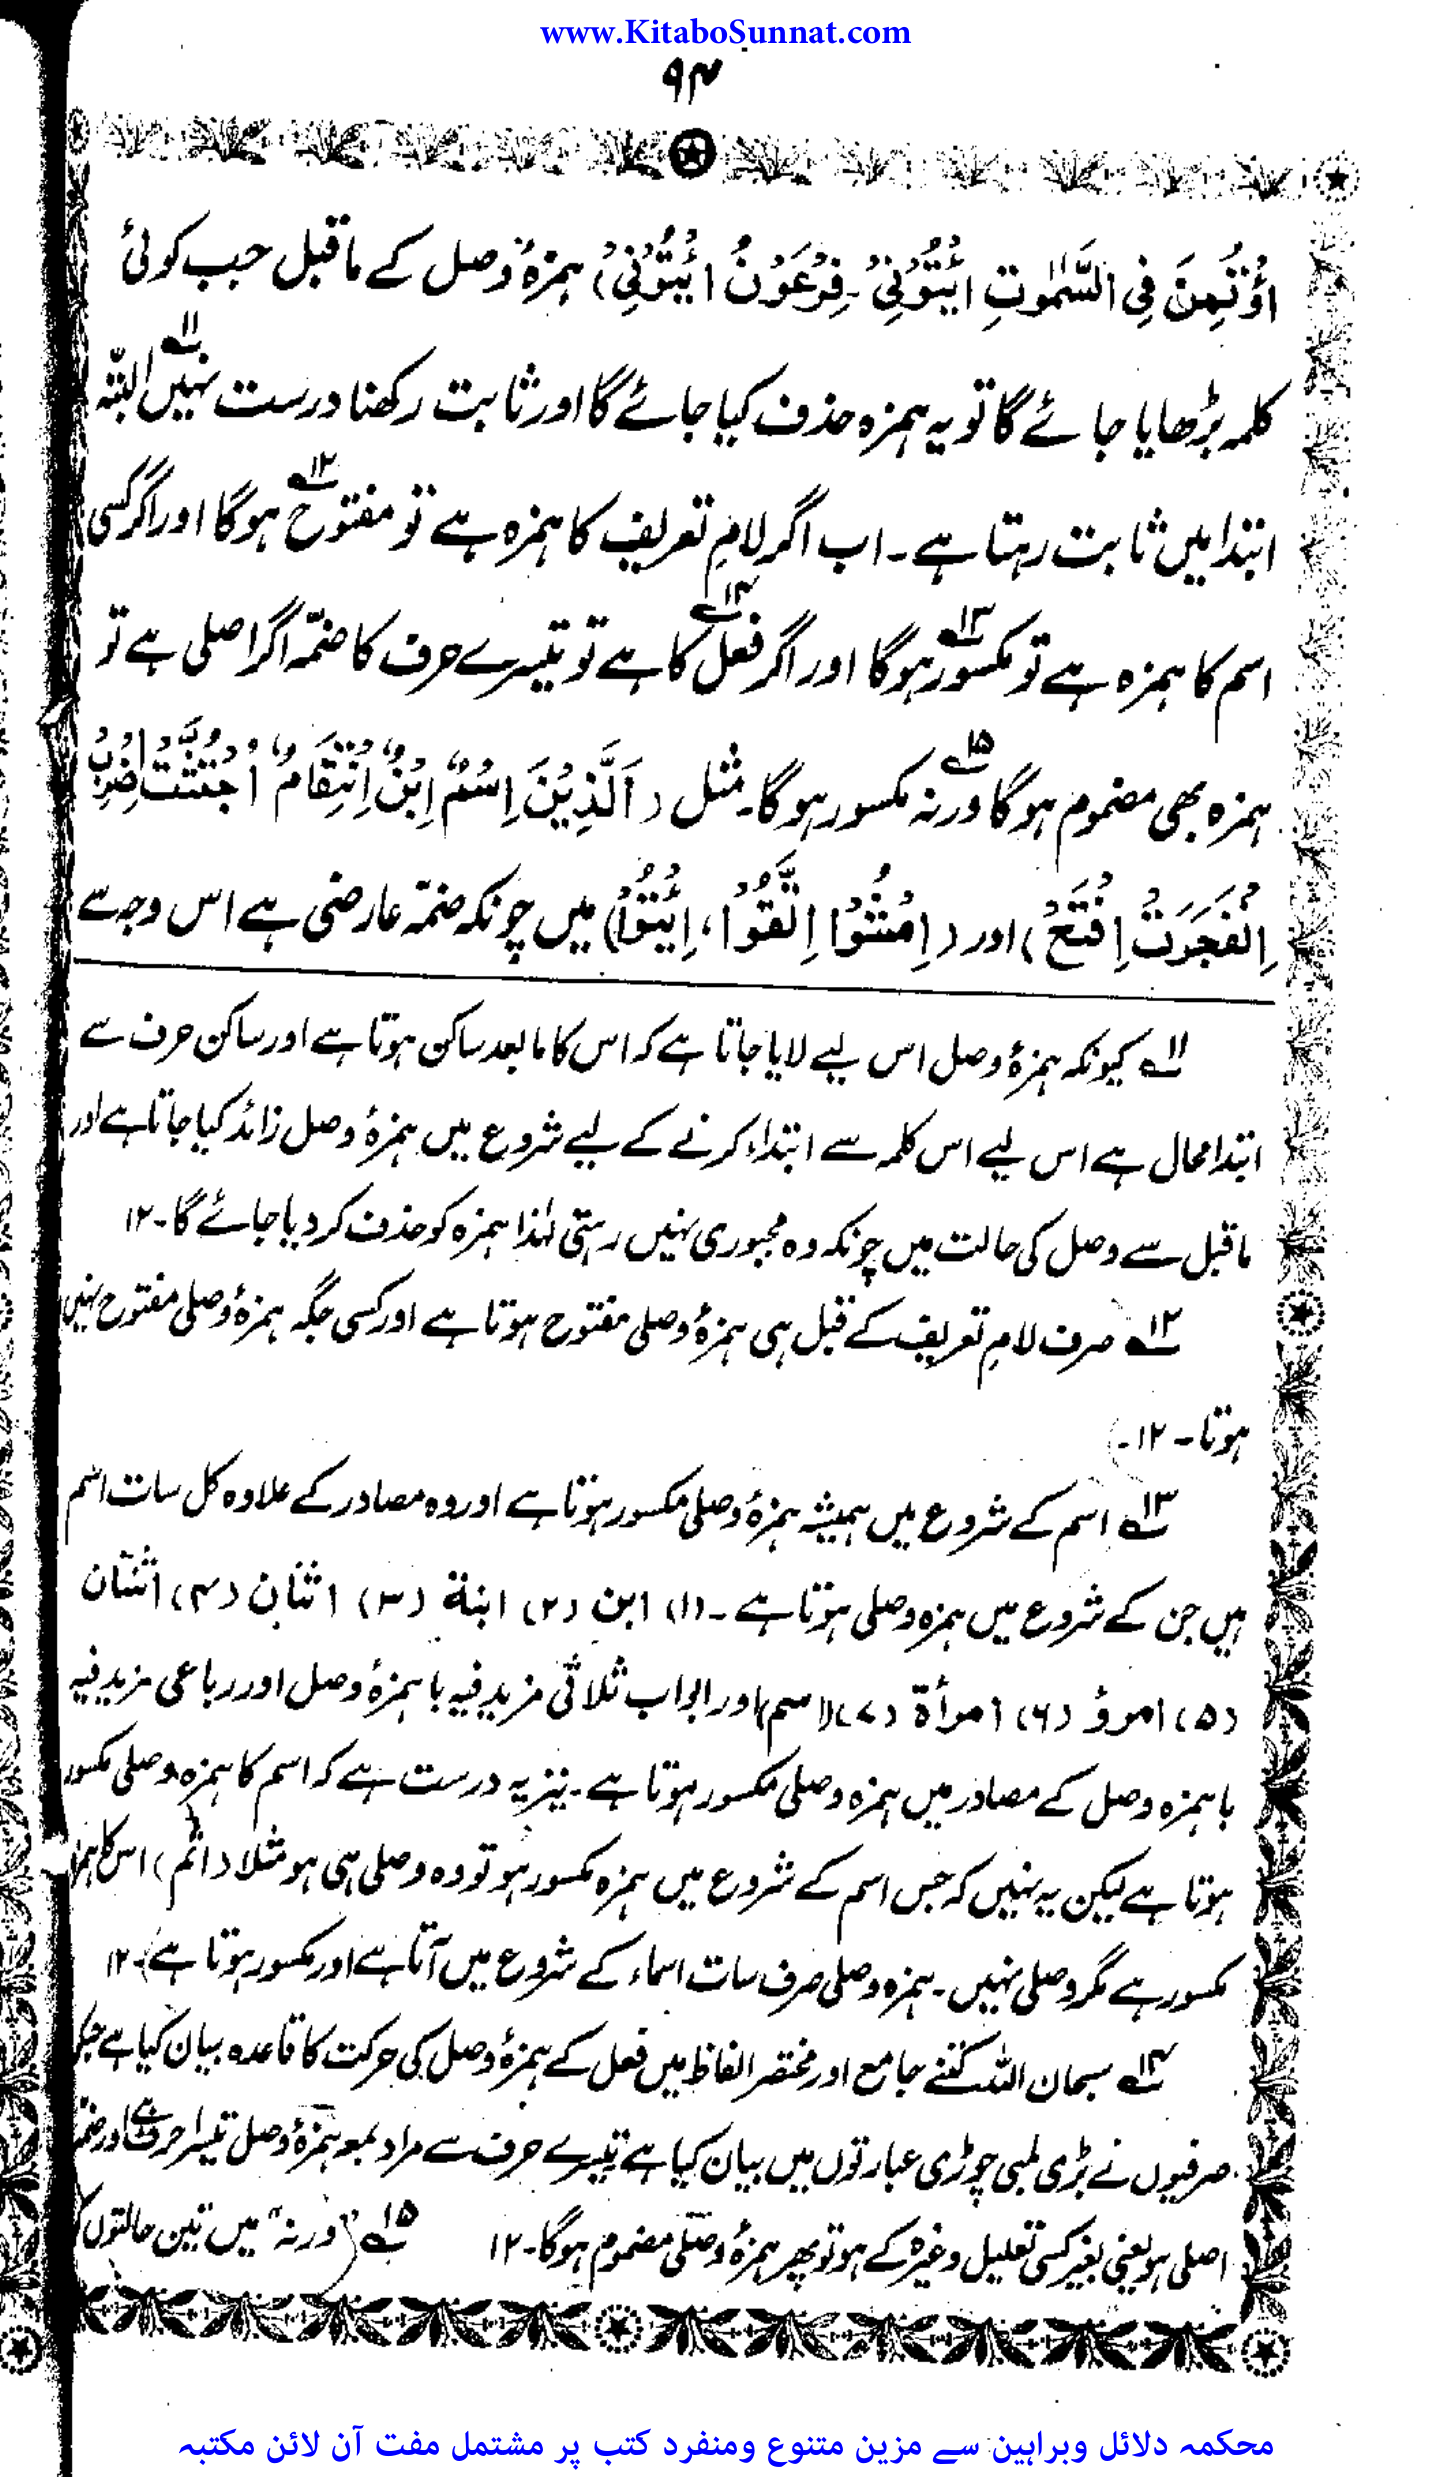 www.KitaboSunnat.com
۹۴
اؤْتُمِنَ فِی السَّمٰوٰتِ ائْتُوْنِیْ۔ فِرْعَوْنُ ائْتُوْنِیْ) ہمزۂ وصل کے ماقبل جب کوئی
کلمہ بڑھایا جائے گا تو یہ ہمزہ حذف کیا جائے گا اور ثابت رکھنا درست نہیں ۱۱؎ البتہ
ابتدا میں ثابت رہتا ہے۔ اب اگر لامِ تعریف کا ہمزہ ہے تو مفتوح ۱۲؎ ہوگا اور اگر کسی
اسم کا ہمزہ ہے تو مکسور ۱۳؎ ہوگا اور اگر فعل ۱۴؎ کا ہے تو تیسرے حرف کا ضمّہ اگر اصلی ہے تو
ہمزہ بھی مضموم ہوگا ورنہ ۱۵؎ مکسور ہوگا۔ مثل (اَلَّذِیْنَ اِسْمٌ اِبْنٌ اِنْتِقَامٌ اُجْتُثَّتْ اِضْرِبْ
اِنْفَجَرَتْ اِفْتَحْ) اور (اِمْشُوْا اِتَّقُوْا، اِیْتُوْا) میں چونکہ ضمّہ عارضی ہے اس وجہ سے
۱۱؎ کیونکہ ہمزۂ وصل اس لیے لایا جاتا ہے کہ اس کا مابعد ساکن ہوتا ہے اور ساکن حرف سے
ابتدا محال ہے اس لیے اس کلمہ سے ابتداء کرنے کے لیے شروع میں ہمزۂ وصل زائد کیا جاتا ہے اور
ماقبل سے وصل کی حالت میں چونکہ وہ مجبوری نہیں رہتی لہٰذا ہمزہ کو حذف کر دیا جائے گا۔ ۱۲
۱۲؎ صرف لامِ تعریف کے قبل ہی ہمزۂ وصلی مفتوح ہوتا ہے اور کسی جگہ ہمزۂ وصلی مفتوح نہیں
ہوتا۔ ۱۲۔
۱۳؎ اسم کے شروع میں ہمیشہ ہمزۂ وصلی مکسور ہوتا ہے اور وہ مصادر کے علاوہ کل سات اسم
ہیں جن کے شروع میں ہمزہ وصلی ہوتا ہے۔ (۱) ابن (۲) ابنة (۳) اثنان (۴) اثنتان
(۵) امرؤ (۶) امرأة (۷) اسم) اور ابواب ثلاثی مزید فیہ با ہمزۂ وصل اور رباعی مزید فیہ
با ہمزہ وصل کے مصادر میں ہمزہ وصلی مکسور ہوتا ہے۔ نیز یہ درست ہے کہ اسم کا ہمزہ وصلی مکسور
ہوتا ہے لیکن یہ نہیں کہ جس اسم کے شروع میں ہمزہ مکسور ہو تو وہ وصلی ہی ہو مثلا (اثم) اس کا ہمزہ
مکسور ہے مگر وصلی نہیں۔ ہمزہ وصلی صرف سات اسماء کے شروع میں آتا ہے اور مکسور ہوتا ہے)۔ ۱۲
۱۴؎ سبحان اللہ کتنے جامع اور مختصر الفاظ میں فعل کے ہمزۂ وصل کی حرکت کا قاعدہ بیان کیا ہے جبکہ
صرفیوں نے بڑی لمبی چوڑی عبارتوں میں بیان کیا ہے تیسرے حرف سے مراد بمع ہمزۂ وصل تیسرا حرف ہے اور ضمہ
اصلی ہو یعنی بغیر کسی تعلیل وغیرہ کے ہو تو پھر ہمزۂ وصلی مضموم ہوگا۔ ۱۲ ۱۵؎ "ورنہ" میں تین حالتوں کا
محکمہ دلائل وبراہین سے مزین متنوع ومنفرد کتب پر مشتمل مفت آن لائن مکتبہ